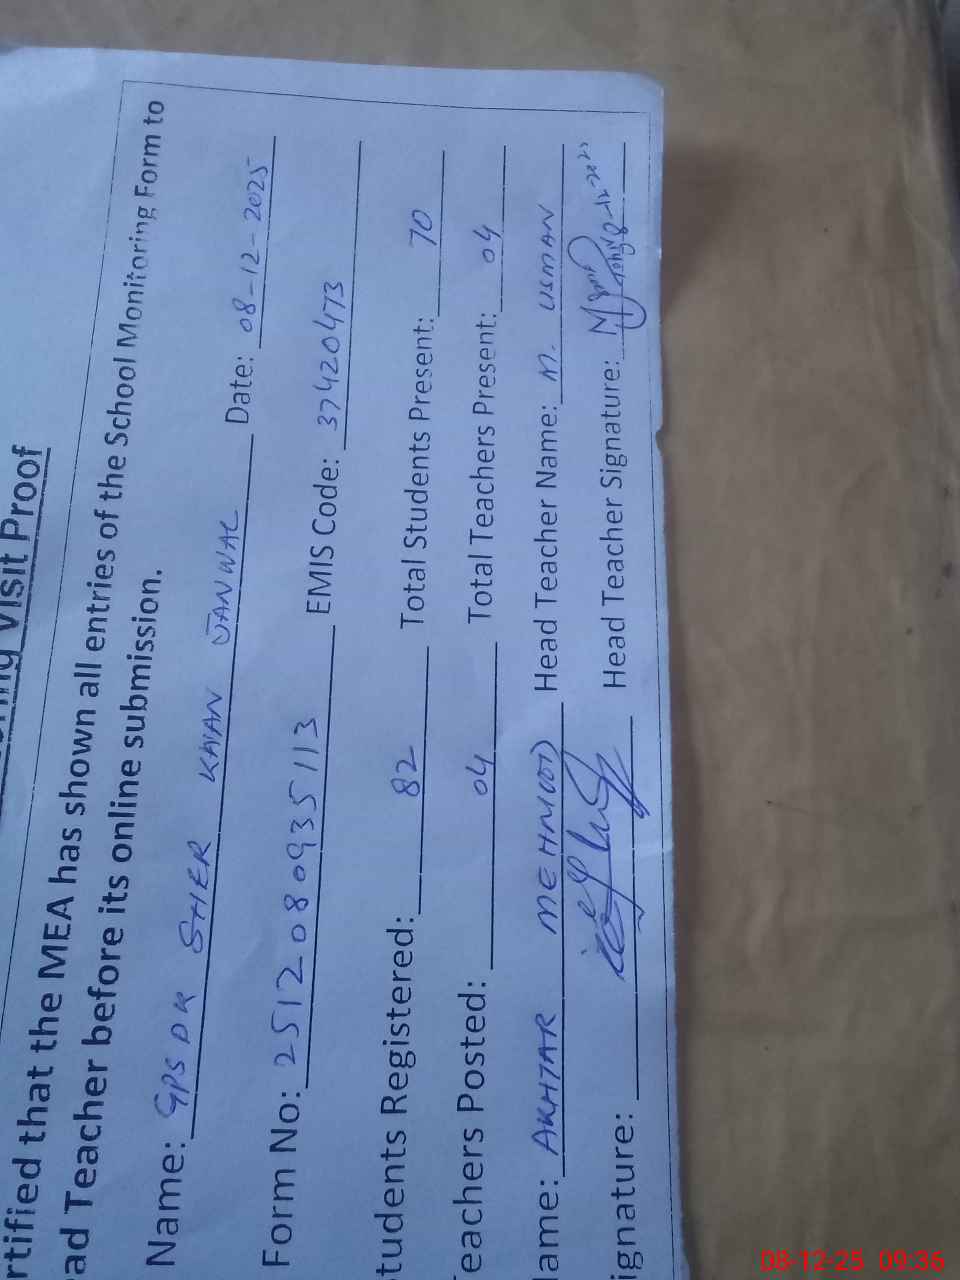 ring Visit Proof
rtified that the MEA has shown all entries of the School Monitoring Form to
ad Teacher before its online submission.
Name: GPS DK SHER KHAN JANWAL Date: 08-12-2025
Form No: 2512080935113 EMIS Code: 37420473
tudents Registered: 82 Total Students Present: 70
eachers Posted: 04 Total Teachers Present: 04
ame: AKHTAR MEHMOOD Head Teacher Name: M. USMAN
ignature: Head Teacher Signature: 8-12-2025
08-12-25 09:36